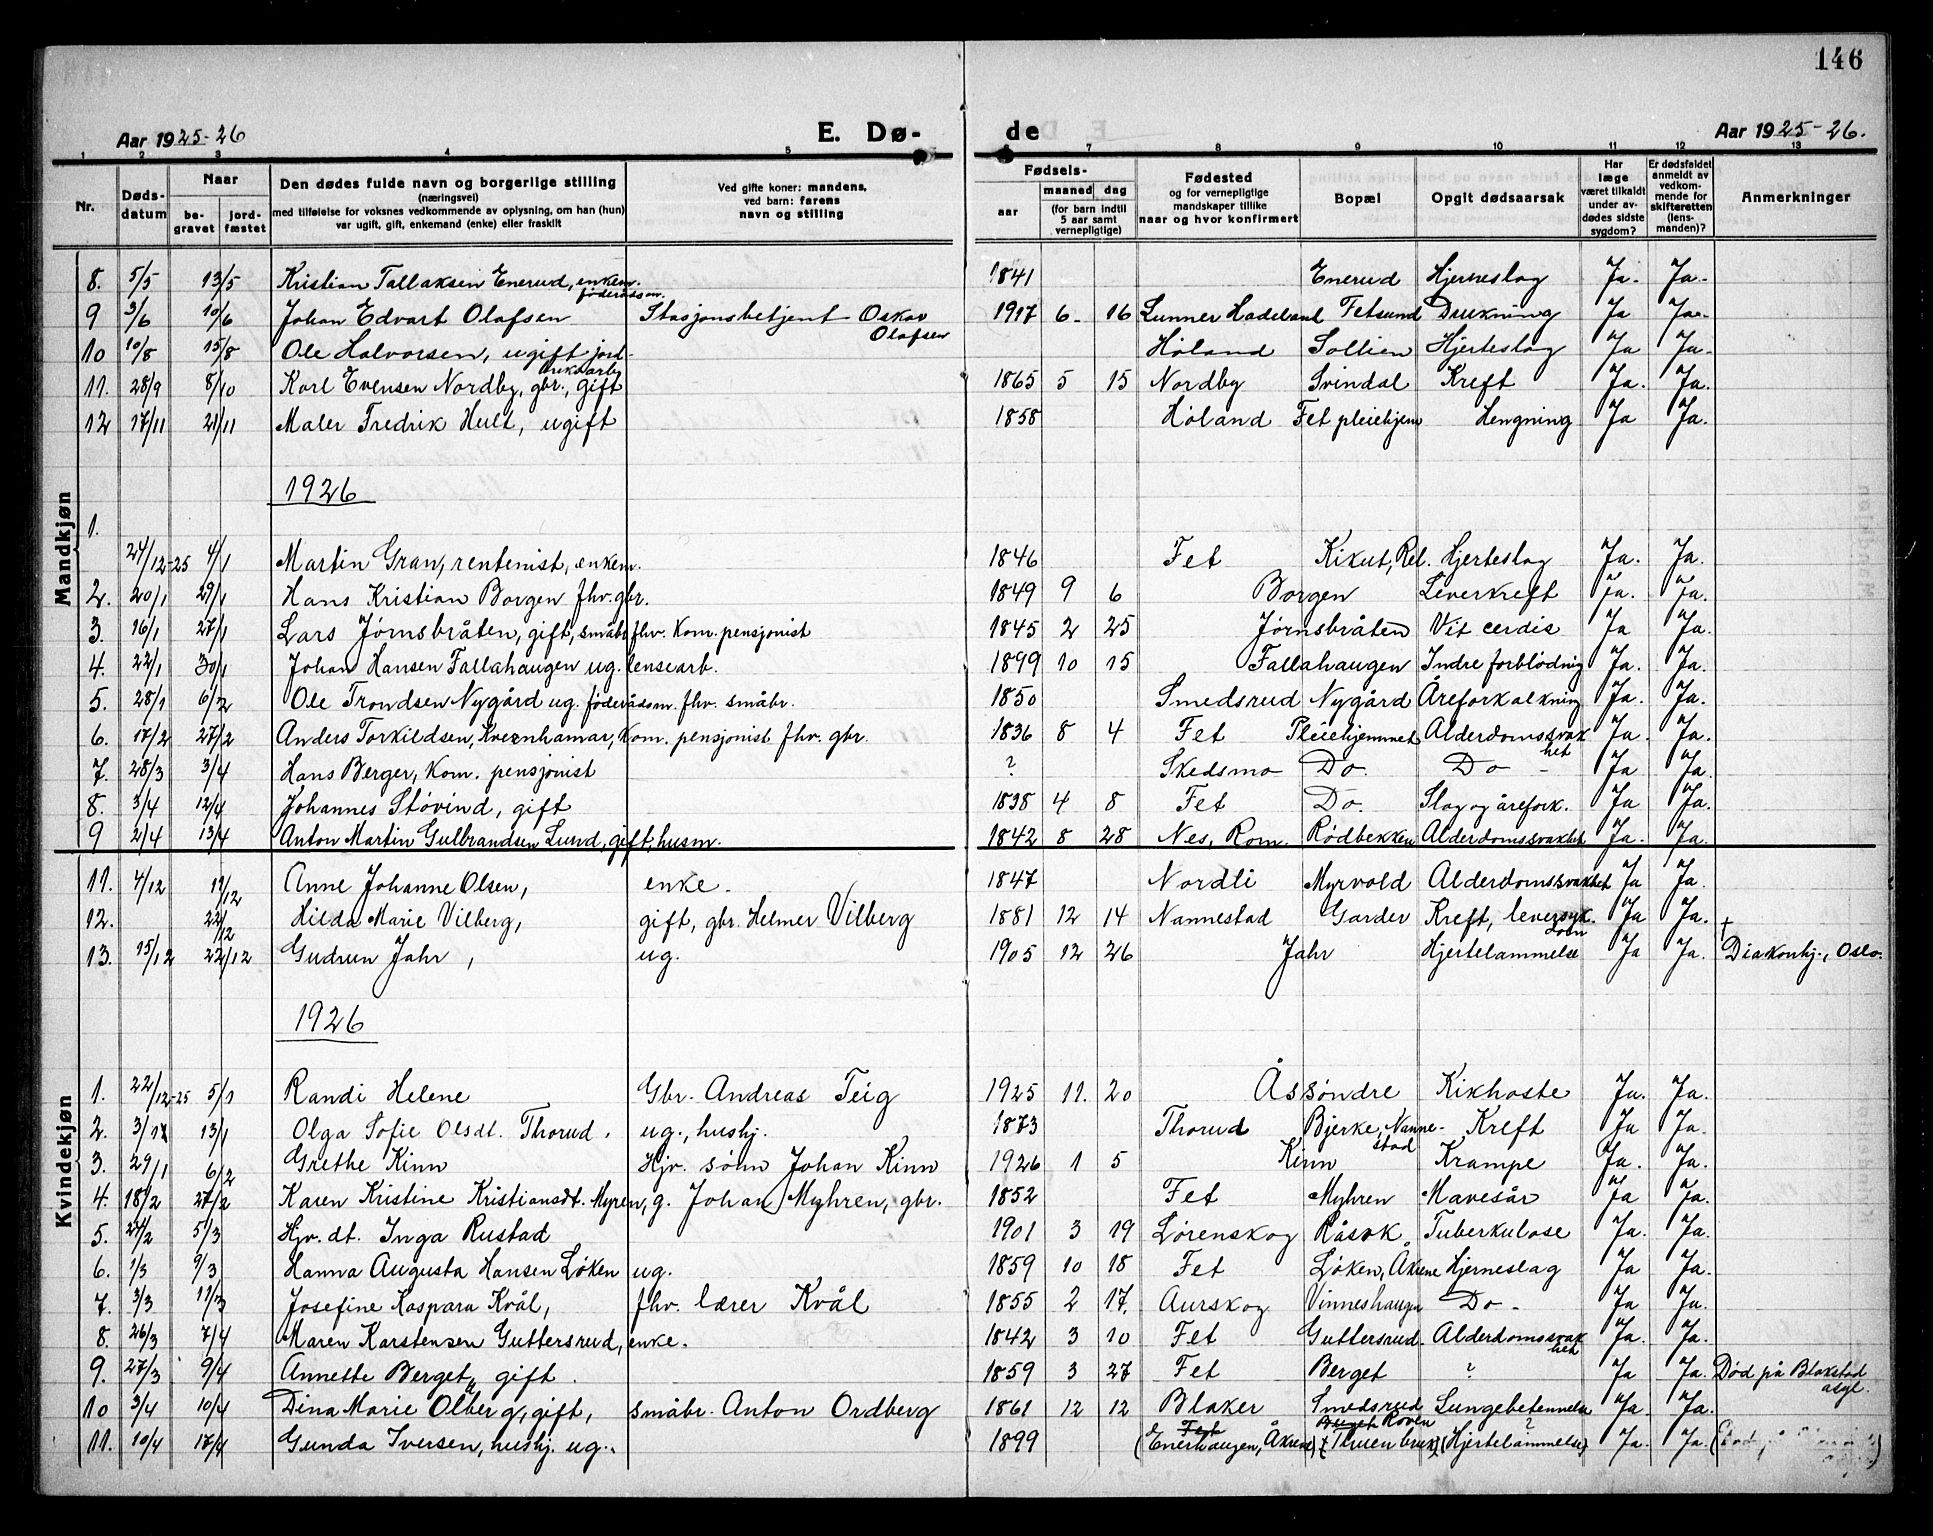 146
Aar 1925-26
E. Dø-
de
Aar 1925-26.
1 2 3 4 5 7 8 9 10 11 12 13
Nr.
Døds-
datum
Naar
be-
gravet
jord-
fæstet
Den dødes fulde navn og borgerlige stilling
(næringsvei)
med tilføielse for voksnes vedkommende av oplysning, om han (hun)
var ugift, gift, enkemand (enke) eller fraskilt
Ved gifte koner: mandens,
ved barn: farens
navn og stilling
Fødsels-
aar
maaned dag
(for barn indtil
5 aar samt
vernepligtige)
Fødested
og for vernepligtige
mandskaper tillike
naar og hvor konfirmert
Bopæl
Opgit dødsaarsak
Har
læge
været tilkaldt
under av-
dødes sidste
sygdom?
Er dødsfaldet
anmeldt av
vedkom-
mende for
skifteretten
(lens-
manden)?
Anmerkninger
Mandkjøn
8. 5/5 13/5 Kristian Tallaksen Enerud, enkem. føderådsm. 1841 Enerud Hjerneslag Ja. Ja.
9 3/6 10/6 Johan Edvart Olafsen Stasjonsbetjent Oskar Olafsen 1917 6 16 Lunner Hadeland Fetsund Drukning Ja Ja.
10 10/8 15/8 Ole Halvorsen, ugift jord- Høland Sollien Hjerteslag Ja Ja.
11. 28/9 8/10 Karl Evensen Nordby, gbr., gift 1865 5 15 Nordby Svindal Kreft Ja. Ja.
12 17/11 21/11 Maler Fredrik Hult, ugift 1858 Høland Fet pleiehjem Hengning Ja Ja.
1926
1. 24/12-25 4/1 Martin Gran, rentenist, enkem. 1846 Fet Kikut, Rel. Hjerteslag Ja. Ja.
2. 20/1 29/1 Hans Kristian Borgen fhv. gbr. 1849 9 6 Borgen Leverkreft Ja. Ja.
3. 16/1 27/1 Lars Jørnsbråten, gift, småbr. fhv. Kom. pensjonist 1845 2 25 Jørnsbråten Vit cerdis Ja Ja.
4. 22/1 30/1 Johan Hansen Fallahaugen ug. lensearb. 1899 10 15 Fallahaugen Indre forblødning Ja. Ja.
5. 28/1 6/2 Ole Trondsen Nygård ug. føderådsm. fhv. småbr. 1850 Smedsrud Nygård Åreforkalkning Ja. Ja.
6. 17/2 27/2 Anders Torkildsen, Kvernhamar, Kom. pensjonist fhv. gbr. 1836 8 4 Fet Pleiehjemmet Alderdomssvakhet Ja. Ja.
7. 28/3 3/4 Hans Berger, Kom. pensjonist ? Skedsmo Do. Do - Ja Ja.
8. 3/4 12/4 Johannes Støvind, gift 1838 4 8 Fet Do. Slag og årefork. Ja Ja.
9 2/4 13/4 Anton Martin Gulbrandsen Lund, gift, husm. 1842 8 28 Nes, Rom. Rødbekken Alderdomssvakhet Ja. Ja.
Kvindekjøn
11. 4/12 11/12 Anne Johanne Olsen, enke. 1847 Nordli Myrvold Alderdomssvakhet Ja Ja.
12. 22/12 Hilda Marie Vilberg, gift, gbr. Helmer Vilberg 1881 12 14 Nannestad Garder Kreft, leversykdom Ja Ja.
13. 15/12 22/12 Gudrun Jahr, ug. 1905 12 26 Jahr Hjertelammelse Ja Ja. Diakonhj., Oslo.
1926
1. 22/12-25 5/1 Randi Helene Gbr. Andreas Teig 1925 11. 20 Åssøndre Kikhoste Ja. Ja.
2. 13/1 Olga Sofie Olsdt. Thorud. ug., hushj. 1873 Thorud Bjerke, Nannestad Kreft Ja Ja.
3. 29/1 6/2 Grethe Kinn Hjv. sønn Johan Kinn 1926 1 5 Kinn Krampe Ja. Ja.
4. 18/2 27/2 Karen Kristine Kristiansdt. Myren, g. Johan Myhren, gbr. 1852 Fet Myhren Mavesår Ja Ja.
5. 24/2 5/3 Hjv. dt. Inga Rustad 1901 3 19 Lørenskog Råsok Tuberkulose Ja. Ja.
6. 1/3 9/3 Hanna Augusta Hansen Løken ug. 1859 10 18 Fet Løken, Åkrene Hjerneslag Ja Ja.
7. 3/3 11/3 Josefine Kaspara Kvål, fhv. lærer Kvål 1855 2 17. Aurskog Vinneshaugen Do - Ja Ja.
8. 26/3 7/4 Maren Karstensen Guttersrud, enke. 1842 3 10 Fet Guttersrud Alderdomssvakhet Ja. Ja.
9. 27/3 9/4 Annette Berget, gift. 1859 3 27 Fet Berget ? Ja Ja. Død på Blakstad asyl.
10 3/4 10/4 Dina Marie Olberg, gift, småbr. Anton Ordberg 1861 12 12 Blaker Smedsrud Lungebetennelse Ja. Ja.
11. 10/4 17/4 Gunda Iversen, hushj. ug. 1899 Fet (Enerhaugen, Åkrene) Roven (Hjertelammelse) ? Ja. Ja.